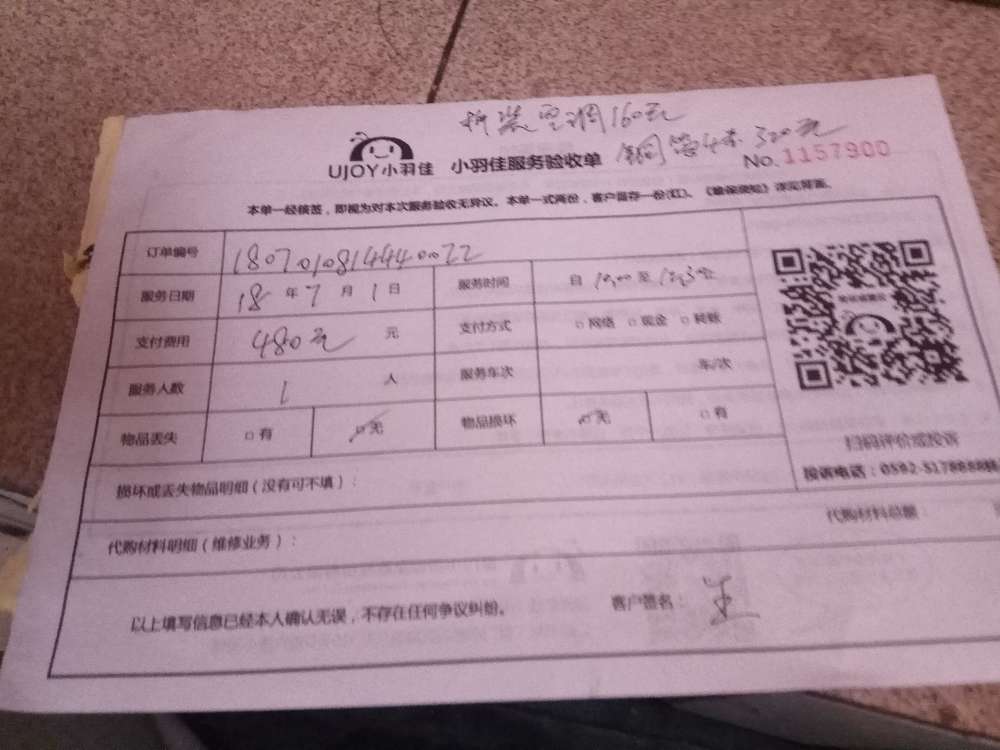 拆装空调160元
UJOY小羽佳 小羽佳服务验收单 铜管4米320元
No.1157900
本单一经核签，即视为对本次服务验收无异议。本单一式两份，客户留存一份(红)。《维保须知》详见背面。
订单编号 1807010814440022
服务日期 18 年 7 月 1 日 服务时间 自 10:00 至
支付费用 480元 元 支付方式 □网络 □现金 □转账
服务人数 1 人 服务车次 车/次
物品丢失 □有 □无 物品损坏 □无 □有
扫码评价或投诉
投诉电话：0592-5178888转
损坏或丢失物品明细（没有可不填）：
代购材料明细（维修业务）： 代购材料总额：
以上填写信息已经本人确认无误，不存在任何争议纠纷。 客户签名：